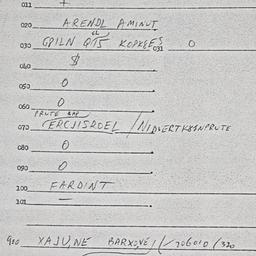 011 +
020 ARENDL AMINUT
030 GPILN QTS KOPKEES 031 0
040 $
050 0
060 0
PRUTE
070 / NIDVERTKKSNPRUTE
080 0
090 0
100 FARDINT
101 —
900 XAJUNE BARXOVEI / 706010 / 320